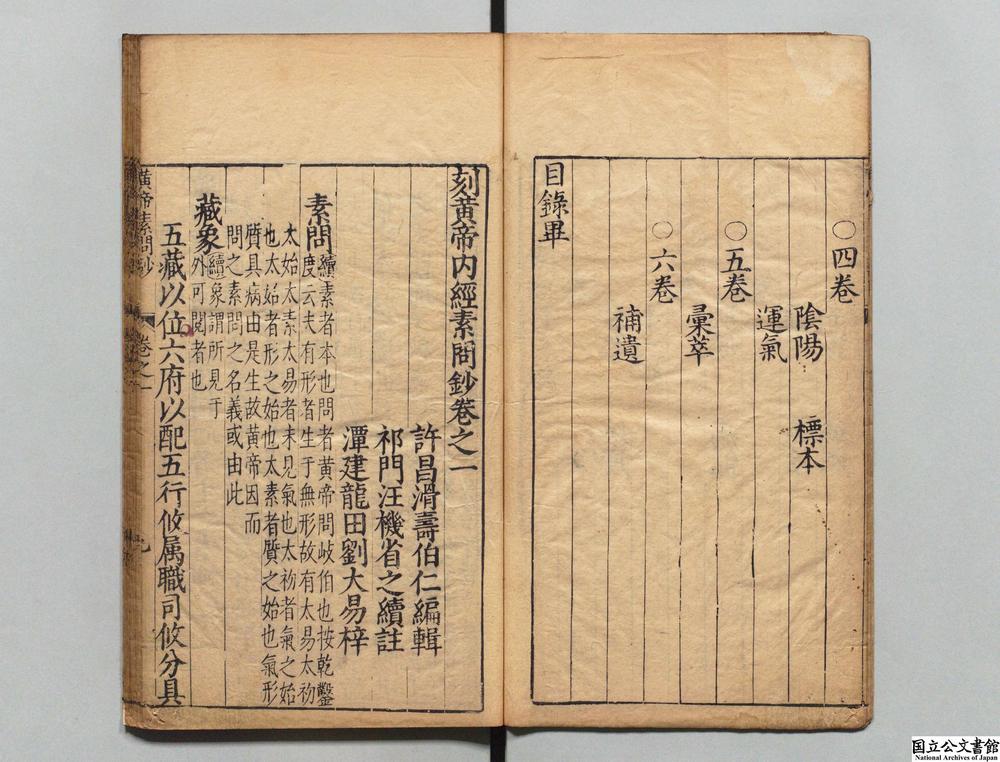 ○四卷
陰陽　標本
運氣
○五卷
彙萃
○六卷
補遺
目錄畢
刻黃帝内經素問鈔卷之一
許昌滑壽伯仁編輯
祁門汪機省之續註
潭建龍田劉大易梓
素問
續素者本也問者黃帝問岐伯也按乾鑿
度云夫有形者生于無形故有太易太初
太始太素太易者未見氣也太初者氣之始
也太始者形之始也太素者質之始也氣形
質具病由是生故黃帝因而
問之素問之名義或由此
藏象
續象謂所見于
外可閱者也
五藏以位六府以配五行攸属職司攸分具
黃帝素問鈔
卷之一
国立公文書館
National Archives of Japan